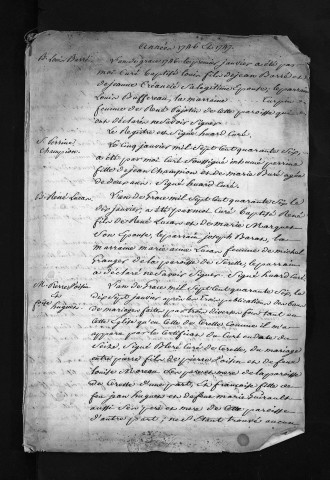 Année 1746 et 1747.
B. Louis Barré L'an de grace 1746 le premier janvier a été par
moi Curé baptisé Louis fils de Jean Barré et
de Jeanne Créancé sa légitime Epouse, le parrain
Louis Buffereau, la marraine
femme de René de cette paroisse qui
ont déclaré ne savoir signer
Le Registre est signé huard Curé.
S. Perrine Champion. Le Cinq janvier mil sept Cent quarante Six
a été par moi Curé Soussigné inhumé perrine
fille de Jean Champion et de marie Buré agée
de douze ans. Signé huard Curé.
B. René Lucan. L'an de Grace mil Sept Cent quarante Six le
dix janvier, a été par moi Curé baptisé René
fils de René Lucan et de marie Marques
Son Epouse, le parrain joseph Baras, la
marraine marie anne Lucan femme de michel
Granger de la paroisse de Cerelle, le parrain
a déclaré ne Savoir Signer. Signé huard Curé.
M. Pierre Poitin et fse hugues. L'an de Grace mil Sept Cent quarante Six, le
dix Sept janvier après les trois publications des bans
de mariages faites par trois divers jours tant en
Cette Eglise qu'en Celle de Cerelles Comme il m'a
apparu par le Certificat du Curé en datte de
Signé Curé de Cerelle, du mariage
entre pierre fils de pierre Poitin et de feue
Louise Moreau Ses pere et mere de la paroisse
de Cerelle d'une part, et françoise fille de
feu jean hugues et de feue marie Guerault
aussi Ses pere et mere de Cette paroisse
d'autre part, ne S'étant trouvé aucun